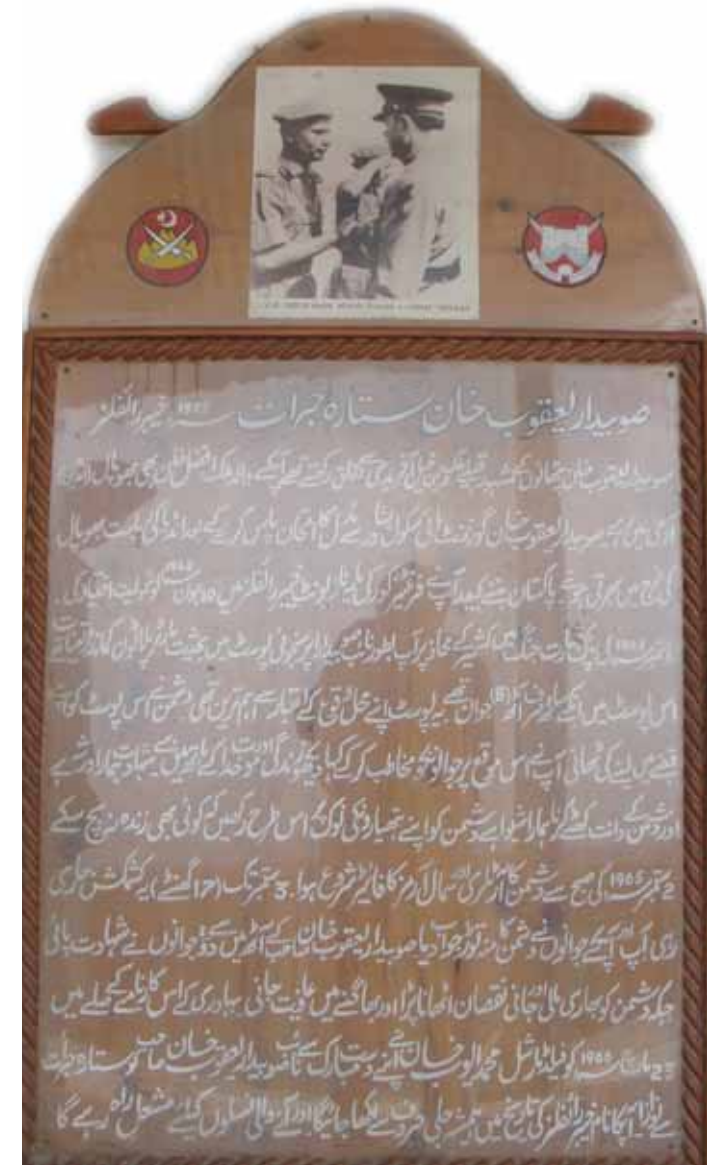 صوبیدار یعقوب خان ستارہ جرأت خیبر رائفلز
صوبیدار یعقوب خان پٹھانوں کے قبیلے آفریدی سے تعلق رکھتے تھے آپ کے والد ملک افضل خان بھی
آرمی میں تھے صوبیدار یعقوب خان گورنمنٹ ہائی سکول پشاور سے مڈل کا امتحان پاس کر کے بعد انڈیا کی
فوج میں بھرتی ہوئے پاکستان بننے کے بعد آپ نے فرنٹیر کور کی مایہ ناز یونٹ خیبر رائفلز میں جون کو شمولیت اختیار کی۔
پاک بھارت جنگ میں کشمیر کے محاذ پر آپ بطور نائب صوبیدار پوسٹ میں بحیثیت پلاٹون کمانڈر تعینات
اس پوسٹ میں آپ کے ساتھ صرف آٹھ (8) جوان تھے یہ پوسٹ اپنے محل وقوع کے اعتبار سے اہم ترین تھی دشمن نے اس پوسٹ کو اپنے
قبضے میں لینے کی ٹھانی آپ نے اس موقع پر جوانوں کو مخاطب کر کے کہا دیکھو زندگی اور موت خدا کے ہاتھ میں ہے شہادت ہمارا ورثہ ہے
اور دشمن کے دانت کھٹے کرنا ہمارا شیوہ ہے دشمن کو اپنے ہتھیاروں کی نوک پر اس طرح رکھیں کہ کوئی بھی زندہ نہ بچ سکے
2 ستمبر 1965 کی صبح سے دشمن کا آرٹلری اور سمال آرمز کا فائر شروع ہوا۔ ستمبر تک گھنٹے یہ کشمکش جاری
رہی آپ اور آپ کے جوانوں نے دشمن کا منہ توڑ جواب دیا صوبیدار یعقوب خان صاحب کے آٹھ میں سے دو جوانوں نے شہادت پائی
جبکہ دشمن کو بھاری مالی اور جانی نقصان اٹھانا پڑا اور بھاگنے میں عافیت جانی بہادری کے اس کارنامے کے صلے میں
23 مارچ 1966 کو فیلڈ مارشل محمد ایوب خان نے اپنے دست مبارک سے نائب صوبیدار یعقوب خان صاحب کو ستارہ جرأت
سے نوازا آپ کا نام خیبر رائفلز کی تاریخ میں ہمیشہ جلی حروف سے لکھا جائیگا اور آنے والی نسلوں کیلئے مشعل راہ رہے گا